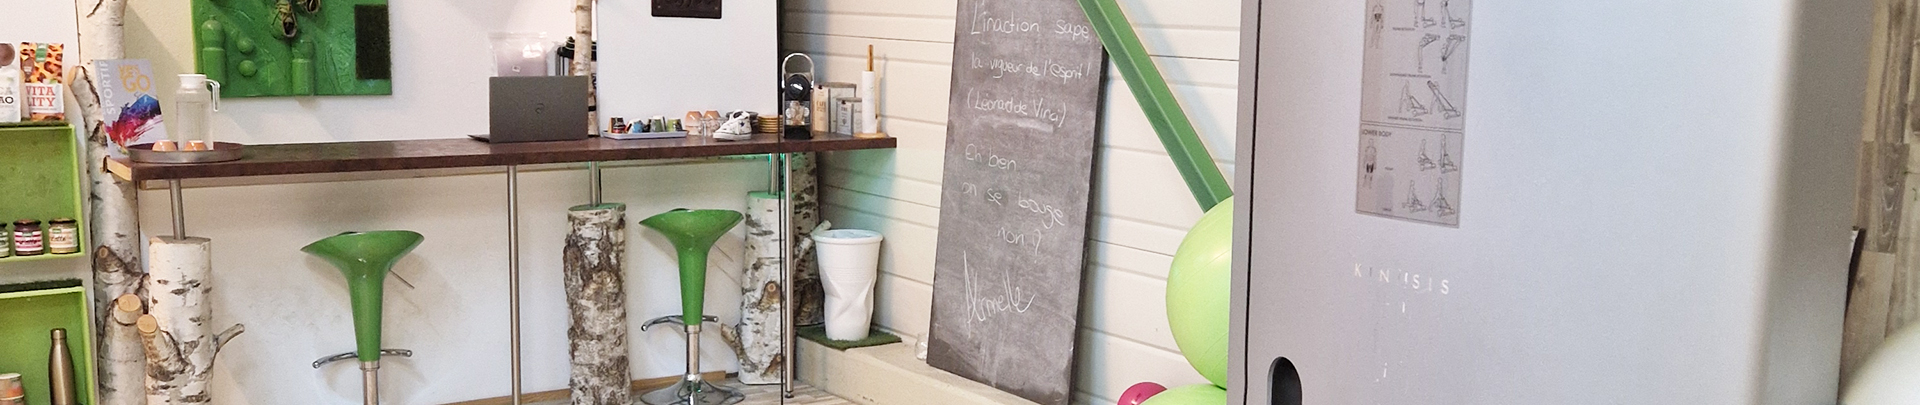 VITA
LITY
AO
SPORTIF
GO
L'inaction sape
la vigueur de l'esprit!
(Léonard de Vinci)
Eh ben
on se bouge
non?
Armelle
LOWER BODY
KINESIS